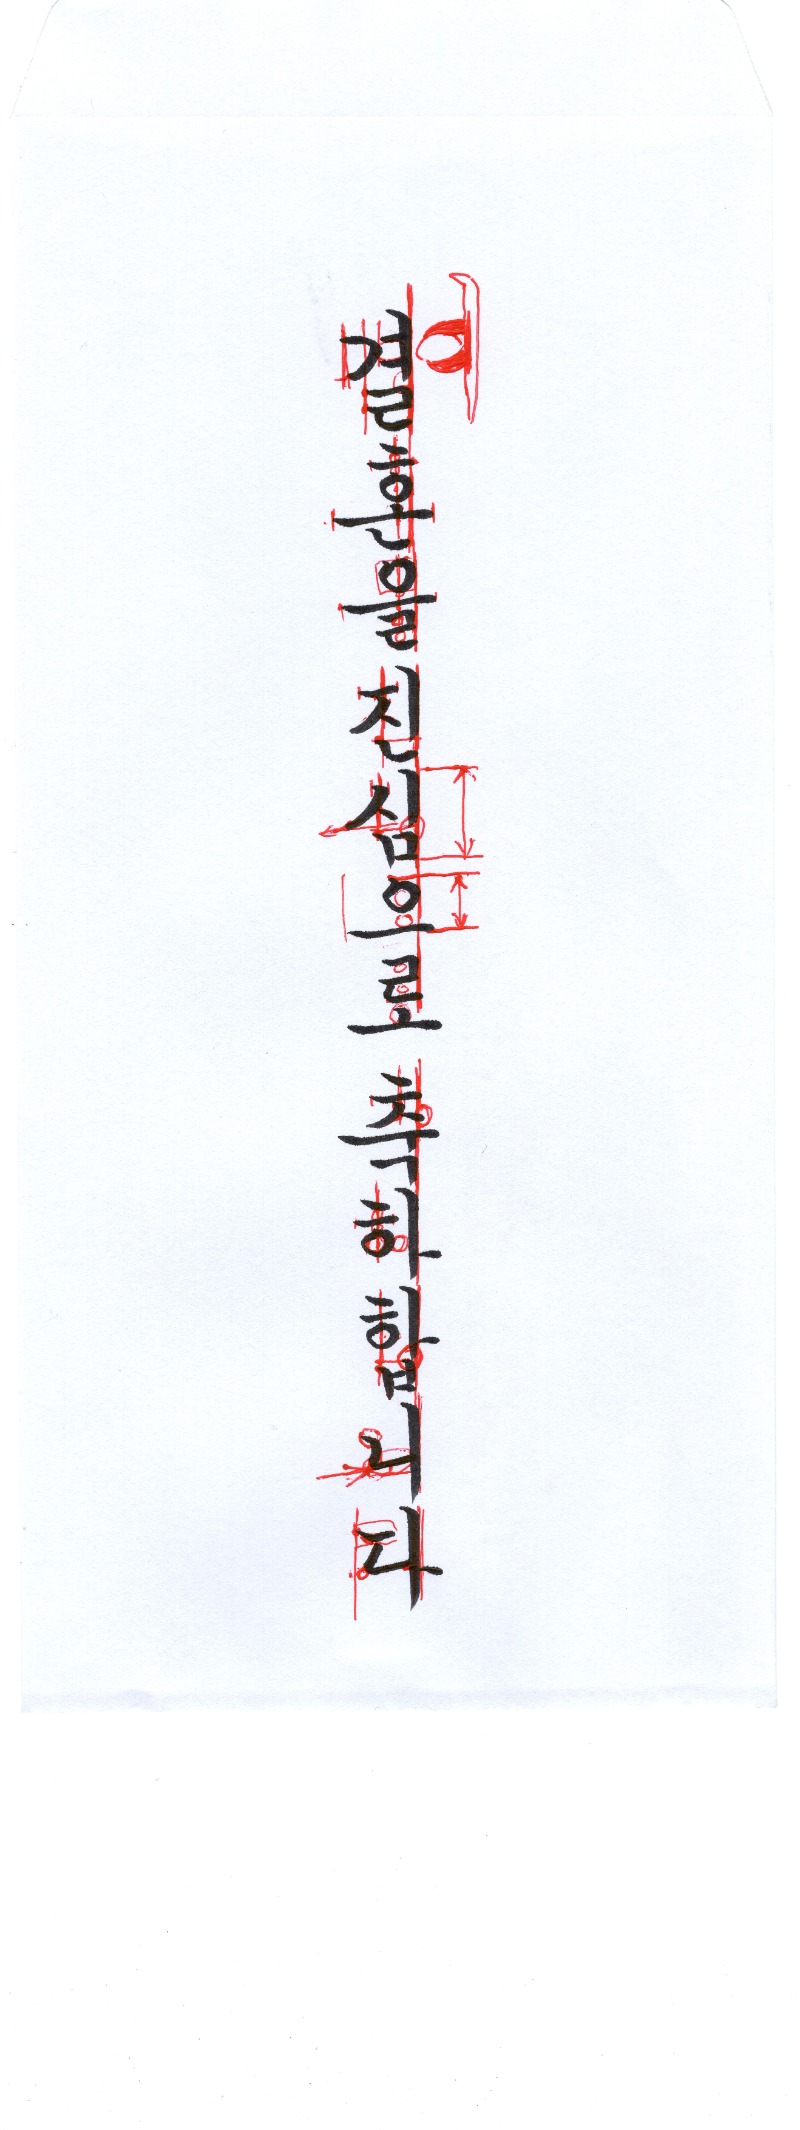 결혼을 진심으로 축하합니다